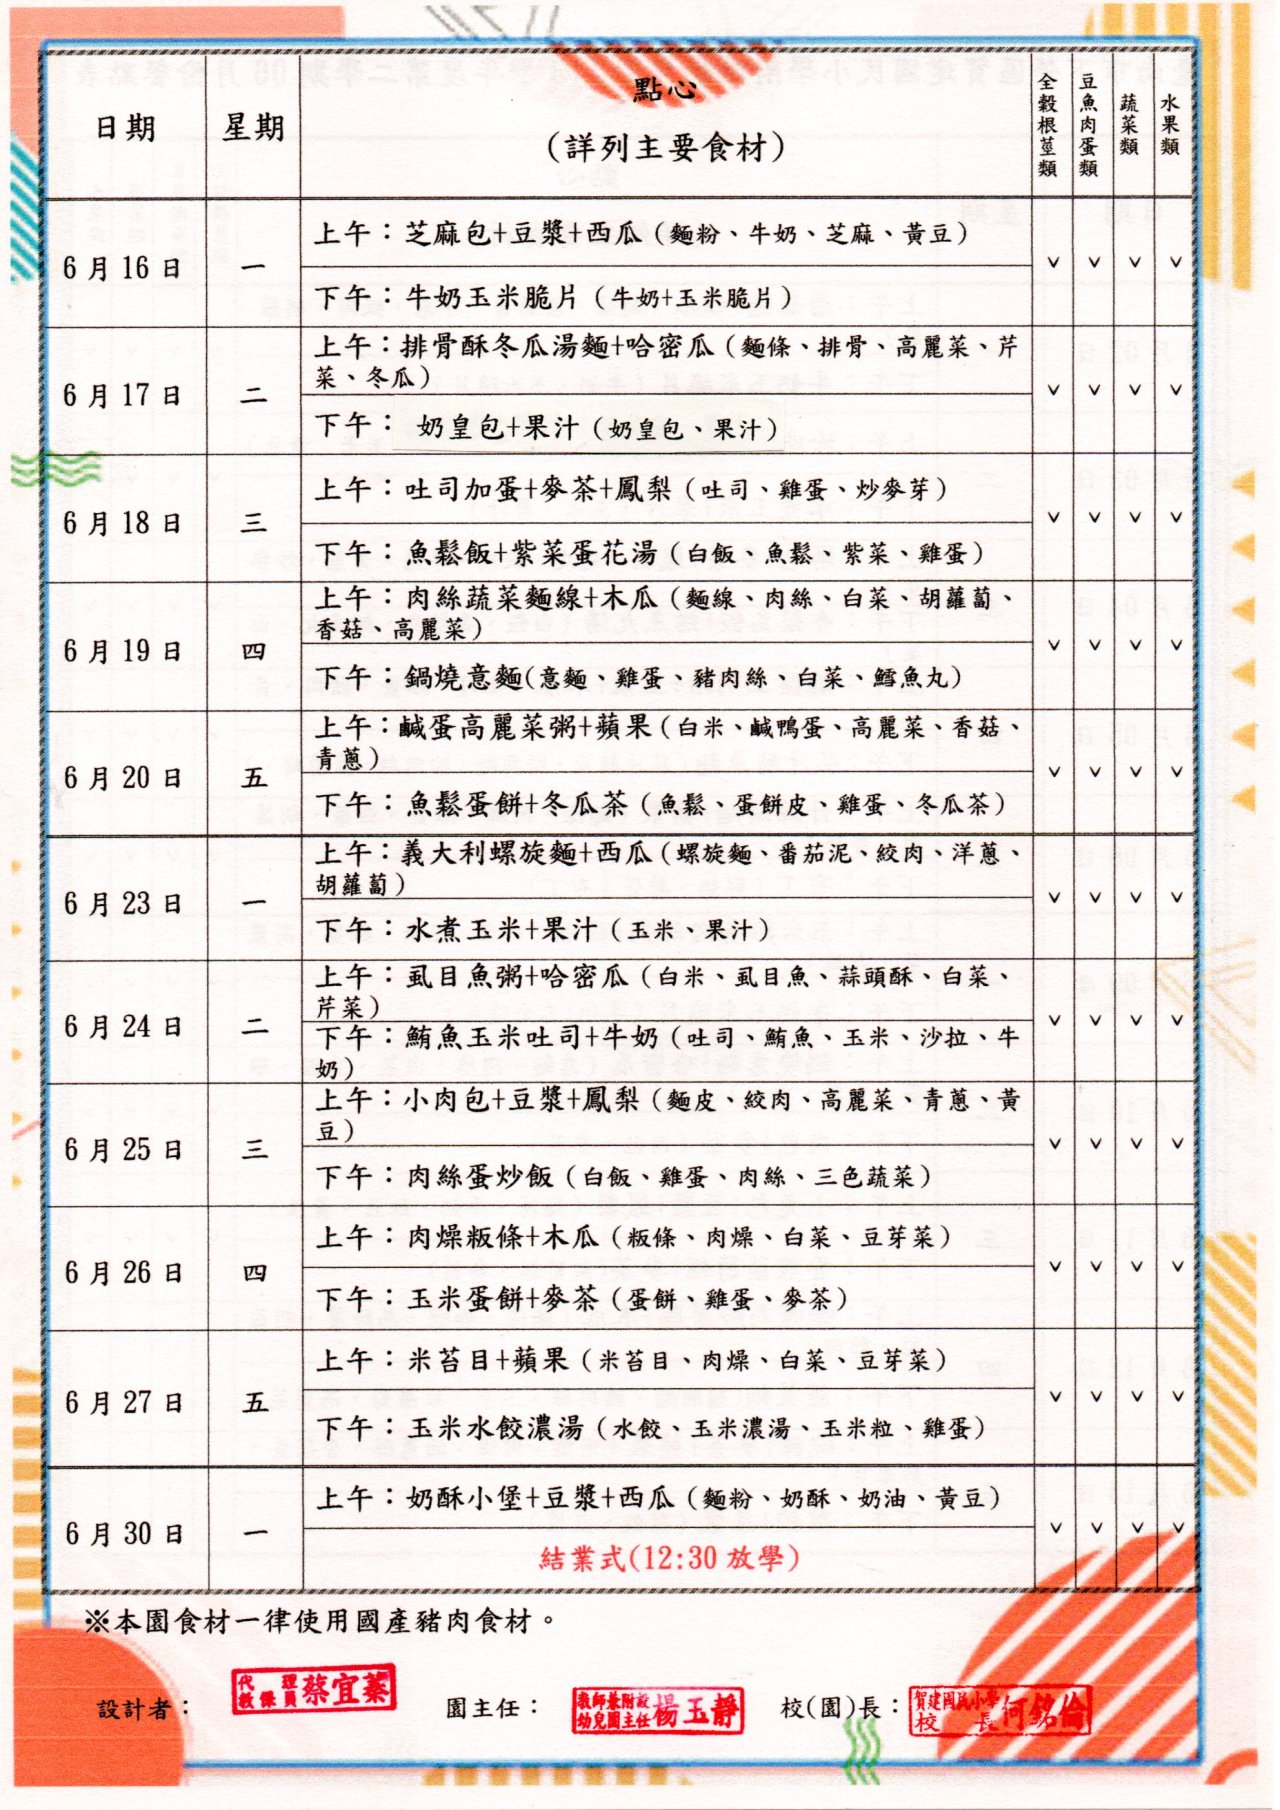 日期
星期
點心
(詳列主要食材)
全穀根莖類
豆魚肉蛋類
蔬菜類
水果類
6 月 16 日
一
上午：芝麻包+豆漿+西瓜（麵粉、牛奶、芝麻、黃豆）
下午：牛奶玉米脆片（牛奶+玉米脆片）
v v v v
6 月 17 日
二
上午：排骨酥冬瓜湯麵+哈密瓜（麵條、排骨、高麗菜、芹
菜、冬瓜）
下午： 奶皇包+果汁（奶皇包、果汁）
v v v v
6 月 18 日
三
上午：吐司加蛋+麥茶+鳳梨（吐司、雞蛋、炒麥芽）
下午：魚鬆飯+紫菜蛋花湯（白飯、魚鬆、紫菜、雞蛋）
v v v v
6 月 19 日
四
上午：肉絲蔬菜麵線+木瓜（麵線、肉絲、白菜、胡蘿蔔、
香菇、高麗菜）
下午：鍋燒意麵(意麵、雞蛋、豬肉絲、白菜、鱈魚丸)
v v v v
6 月 20 日
五
上午：鹹蛋高麗菜粥+蘋果（白米、鹹鴨蛋、高麗菜、香菇、
青蔥）
下午：魚鬆蛋餅+冬瓜茶（魚鬆、蛋餅皮、雞蛋、冬瓜茶）
v v v v
6 月 23 日
一
上午：義大利螺旋麵+西瓜（螺旋麵、番茄泥、絞肉、洋蔥、
胡蘿蔔）
下午：水煮玉米+果汁（玉米、果汁）
v v v v
6 月 24 日
二
上午：虱目魚粥+哈密瓜（白米、虱目魚、蒜頭酥、白菜、
芹菜）
下午：鮪魚玉米吐司+牛奶（吐司、鮪魚、玉米、沙拉、牛
奶）
v v v v
6 月 25 日
三
上午：小肉包+豆漿+鳳梨（麵皮、絞肉、高麗菜、青蔥、黃
豆）
下午：肉絲蛋炒飯（白飯、雞蛋、肉絲、三色蔬菜）
v v v v
6 月 26 日
四
上午：肉燥粄條+木瓜（粄條、肉燥、白菜、豆芽菜）
下午：玉米蛋餅+麥茶（蛋餅、雞蛋、麥茶）
v v v v
6 月 27 日
五
上午：米苔目+蘋果（米苔目、肉燥、白菜、豆芽菜）
下午：玉米水餃濃湯（水餃、玉米濃湯、玉米粒、雞蛋）
v v v v
6 月 30 日
一
上午：奶酥小堡+豆漿+西瓜（麵粉、奶酥、奶油、黃豆）
結業式(12:30 放學)
v v v v
※本園食材一律使用國產豬肉食材。
設計者：
代理
教保員 蔡宜蓁
園主任：
教師兼附設
幼兒園主任 楊玉靜
校(園)長：
賀建國民小學
校長 何銘倫